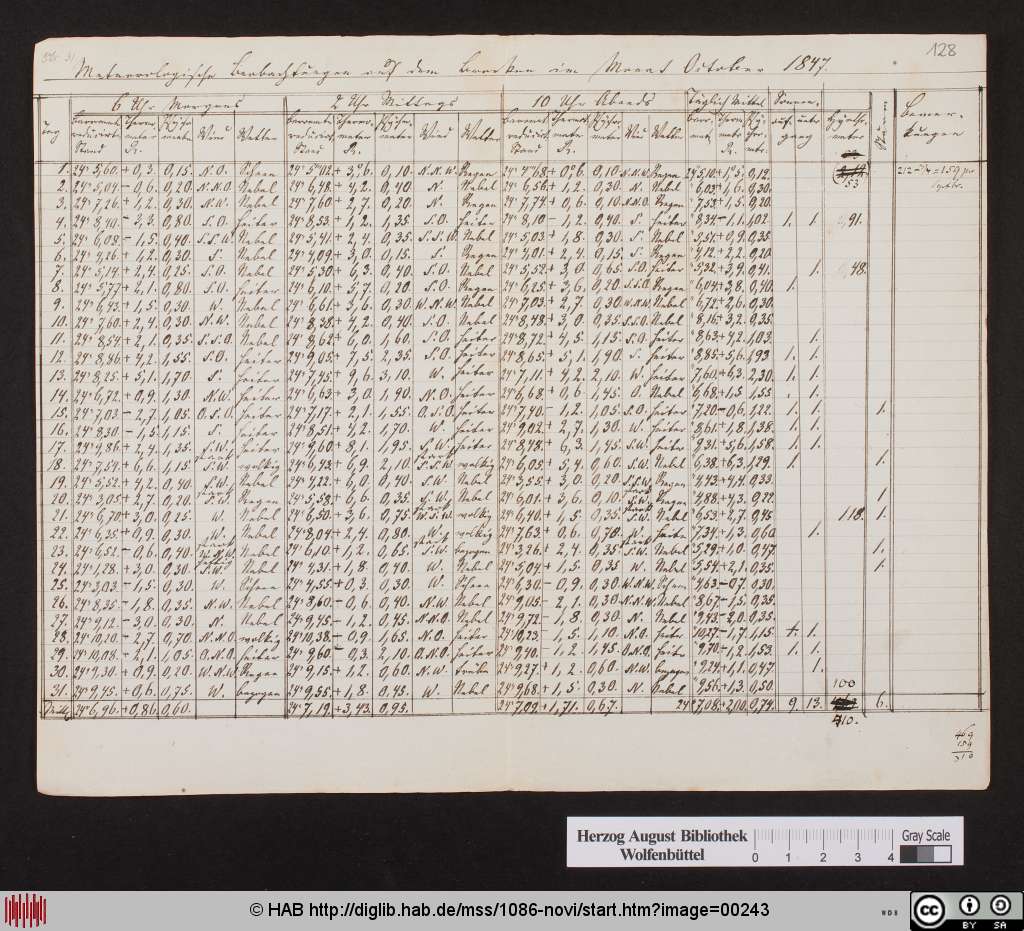 128
Meteorologische Beobachtungen auf dem Brocken im Monat October 1847.
6 Uhr Morgens 2 Uhr Mittags 10 Uhr Abends Täglich Mittel Sonnen-
Tag Wind Wetter Wind Wetter Wind Wetter aufgang untergang Bemerkungen
1. 24" 5,60 + 0,3. 0,15. N.O. 0,10. N.N.W. Regen 0,10. N.N.W. Regen 0,12.
2. 24" 5,04 - 0,6. 0,20. N.N.O. Nebel 24" 6,48. + 4,2. 0,40 N. Nebel 24" 6,56 + 1,2. 0,30. N. Nebel 6,03 + 1,6. 0,30. 153
3. 24" 7,26. + 1,2. 0,30. N.W. Nebel 24" 7,60 + 2,7. 0,20 N. Regen 24" 7,74 + 0,6. 0,10. N.N.O. Regen 7,53 + 1,5. 0,20.
4. 24" 8,40. - 3,3. 0,80 S.O. heiter 24" 8,53 + 1,2. 1,35. S.O. heiter 24" 8,10 - 1,2. 0,40. S. heiter 8,34 - 1,1. 1,02. 1. 1. 91.
5. 24" 6,08. - 1,5. 0,40. S.S.W. Nebel 24" 5,41 + 2,4. 0,35. S.S.W. Nebel 24" 5,03 + 1,8. 0,30. S. Nebel 5,51 + 0,9. 0,35.
6. 24" 4,26 + 1,2. 0,30 S. Nebel 24" 4,09. + 3,0. 0,15. S. Regen 24" 4,01 + 2,4. 0,15. S. Regen 4,12 + 2,2. 0,20
7. 24" 5,14 + 2,4. 0,25. S.O. Nebel 24" 5,30 + 6,3. 0,40. S.O. Nebel 24" 5,52 + 3,0. 0,65. S.O. heiter 5,32 + 3,9. 0,41. 1. 48.
8. 24" 5,77 + 2,1. 0,80 S.O. heiter 24" 6,10. + 5,7. 0,20. S.O. Regen 24" 6,25 + 3,6. 0,20. S.S.O. Regen 6,04 + 3,8. 0,40. 1.
9. 24" 6,43 + 1,5. 0,30 W. Nebel 24" 6,61 + 3,6. 0,30. W.N.W. Nebel 24" 7,03 + 2,7. 0,30. W.N.W. Nebel 6,72 + 2,6. 0,30.
10. 24" 7,60 + 2,4. 0,30. N.W. Nebel 24" 8,38. + 4,2. 0,40. S.O. Nebel 24" 8,48. + 3,0. 0,35. S.S.O. Nebel 8,16 + 3,2. 0,35.
11. 24" 8,54 + 2,1. 0,35. S.S.O. Nebel 24" 8,62 + 6,0. 1,60. S.O. heiter 24" 8,72 + 4,5. 1,15. S.O. heiter 8,63 + 4,2. 1,03. 1.
12. 24" 8,86 + 4,2. 1,55. S.O. heiter 24" 9,05 + 7,5. 2,35. S.O. heiter 24" 8,65 + 5,1. 1,90. S. heiter 8,85 + 5,6. 1,93 1. 1.
13. 24" 8,25 + 5,1. 1,70. S. heiter 24" 7,45 + 9,6. 3,10. W. heiter 24" 7,11 + 4,2. 2,10. W. heiter 7,60 + 6,3. 2,30. 1. 1.
14. 24" 6,72 + 0,9. 1,30. N.W. heiter 24" 6,63 + 3,0. 1,90. N.O. heiter 24" 6,68 + 0,6. 1,45. O. Nebel 6,68 + 1,5. 1,55. 1.
15. 24" 7,03 - 2,7. 1,05. O.S.O. heiter 24" 7,17 + 2,1. 1,55. O.S.O. heiter 24" 7,40 - 1,2. 1,05. S.O. heiter 7,20 - 0,6. 1,22. 1. 1. 1.
16. 24" 8,30 - 1,5. 1,15. S. heiter 24" 8,51 + 4,2. 1,70. W. heiter 24" 9,02 + 2,7. 1,30. W. heiter 8,61 + 1,8. 1,38. 1. 1.
17. 24" 9,86 + 2,4. 1,35. S.W. heiter 24" 9,60 + 8,1. 1,95. S.W. heiter 24" 8,48 + 6,3. 1,45. S.W. heiter 9,31 + 5,6. 1,58. 1. 1.
18. 24" 7,54 + 6,6. 1,15. S.W. wolkig 24" 6,43 + 6,9. 2,10. S.S.W. wolkig 24" 6,05 + 5,4. 0,60. S.W. Nebel 6,38 + 6,3. 1,29. 1. 1.
19. 24" 5,52 + 4,2. 0,40. S.W. Nebel 24" 4,22 + 6,0. 0,40. S.W. Nebel 24" 3,55 + 3,0. 0,20. S.S.W. Regen 4,43 + 4,4. 0,33.
20. 24" 3,05 + 2,7. 0,20. S.W. Regen 24" 5,58 + 6,6. 0,35. S.W. Nebel 24" 6,01 + 3,6. 0,10. S.W. Regen 4,88 + 4,3. 0,22. 1
21. 24" 6,70 + 3,0. 0,25. W. Nebel 24" 6,50 + 3,6. 0,75. W.S.W. wolkig 24" 6,40 + 1,5. 0,35. S.W. Nebel 6,53 + 2,7. 0,45. 118. 1.
22. 24" 6,35 + 0,9. 0,30. W. Nebel 24" 8,04 + 2,4. 0,80. W. wolkig 24" 7,63 + 0,6. 0,70. W. heiter 7,34 + 1,3. 0,60 1.
23. 24" 6,52 - 0,6. 0,40. Nebel 24" 6,10 + 1,2. 0,65. S.W. bezogen 24" 3,26 + 2,4. 0,35. S.W. Nebel 5,29 + 1,0. 0,47. 1.
24. 24" 1,28. + 3,0. 0,30. S.W. Nebel 24" 4,31 + 1,8. 0,40. W. Nebel 24" 5,04 + 1,5. 0,35 W. Nebel 5,54 + 2,1. 0,35. 1.
25. 24" 3,03 - 1,5. 0,30. W. 24" 4,55 + 0,3. 0,30. W. 24" 6,30 - 0,9. 0,30 W.N.W. 4,63 - 0,7. 0,30.
26. 24" 8,35 - 1,8. 0,35. N.W. Nebel 24" 8,60 - 0,6. 0,40. N.W. Nebel 24" 9,05 - 2,1. 0,30. N.N.W. Nebel 8,67 - 1,5. 0,35.
27. 24" 9,12 - 3,0. 0,30 N. Nebel 24" 9,45 - 1,2. 0,45. N.N.O. Nebel 24" 9,72 - 1,8. 0,30 N. Nebel 9,43 - 2,0. 0,35.
28. 24" 10,20 - 2,7. 0,70. N.N.O. wolkig 24" 10,38 - 0,9. 1,65. N.O. heiter 24" 10,23 - 1,5. 1,10. N.O. heiter 10,27 - 1,7. 1,15. 1. 1.
29. 24" 10,08 - 2,1. 1,05. O.N.O. heiter 24" 9,60 - 0,3. 2,10. O.N.O. heiter 24" 9,40 - 1,2. 1,45. O.N.O. heiter 9,70 - 1,2. 1,53. 1. 1.
30. 24" 9,30 + 0,9. 0,20. W.N.W. Regen 24" 9,15 + 1,2. 0,60. N.W. trübe 24" 9,27 + 1,2. 0,60. N.W. bezogen 9,24 + 1,1. 0,47. 1.
31. 24" 9,45 + 0,6. 0,75. W. bezogen 24" 9,55 + 1,8. 0,45. W. Nebel 24" 9,68 + 1,5. 0,30. N. Nebel 9,56 + 1,3. 0,50. 100
24" 6,96. + 0,86. 0,60. 24" 7,19. + 3,43. 0,95. 24" 7,09. + 1,71. 0,67. 24" 7,08. + 2,00. 0,74. 9. 13. 6.
469
159
310
Herzog August Bibliothek
Wolfenbüttel
0 1 2 3 4
Gray Scale
© HAB http://diglib.hab.de/mss/1086-novi/start.htm?image=00243
WDB
cc BY SA